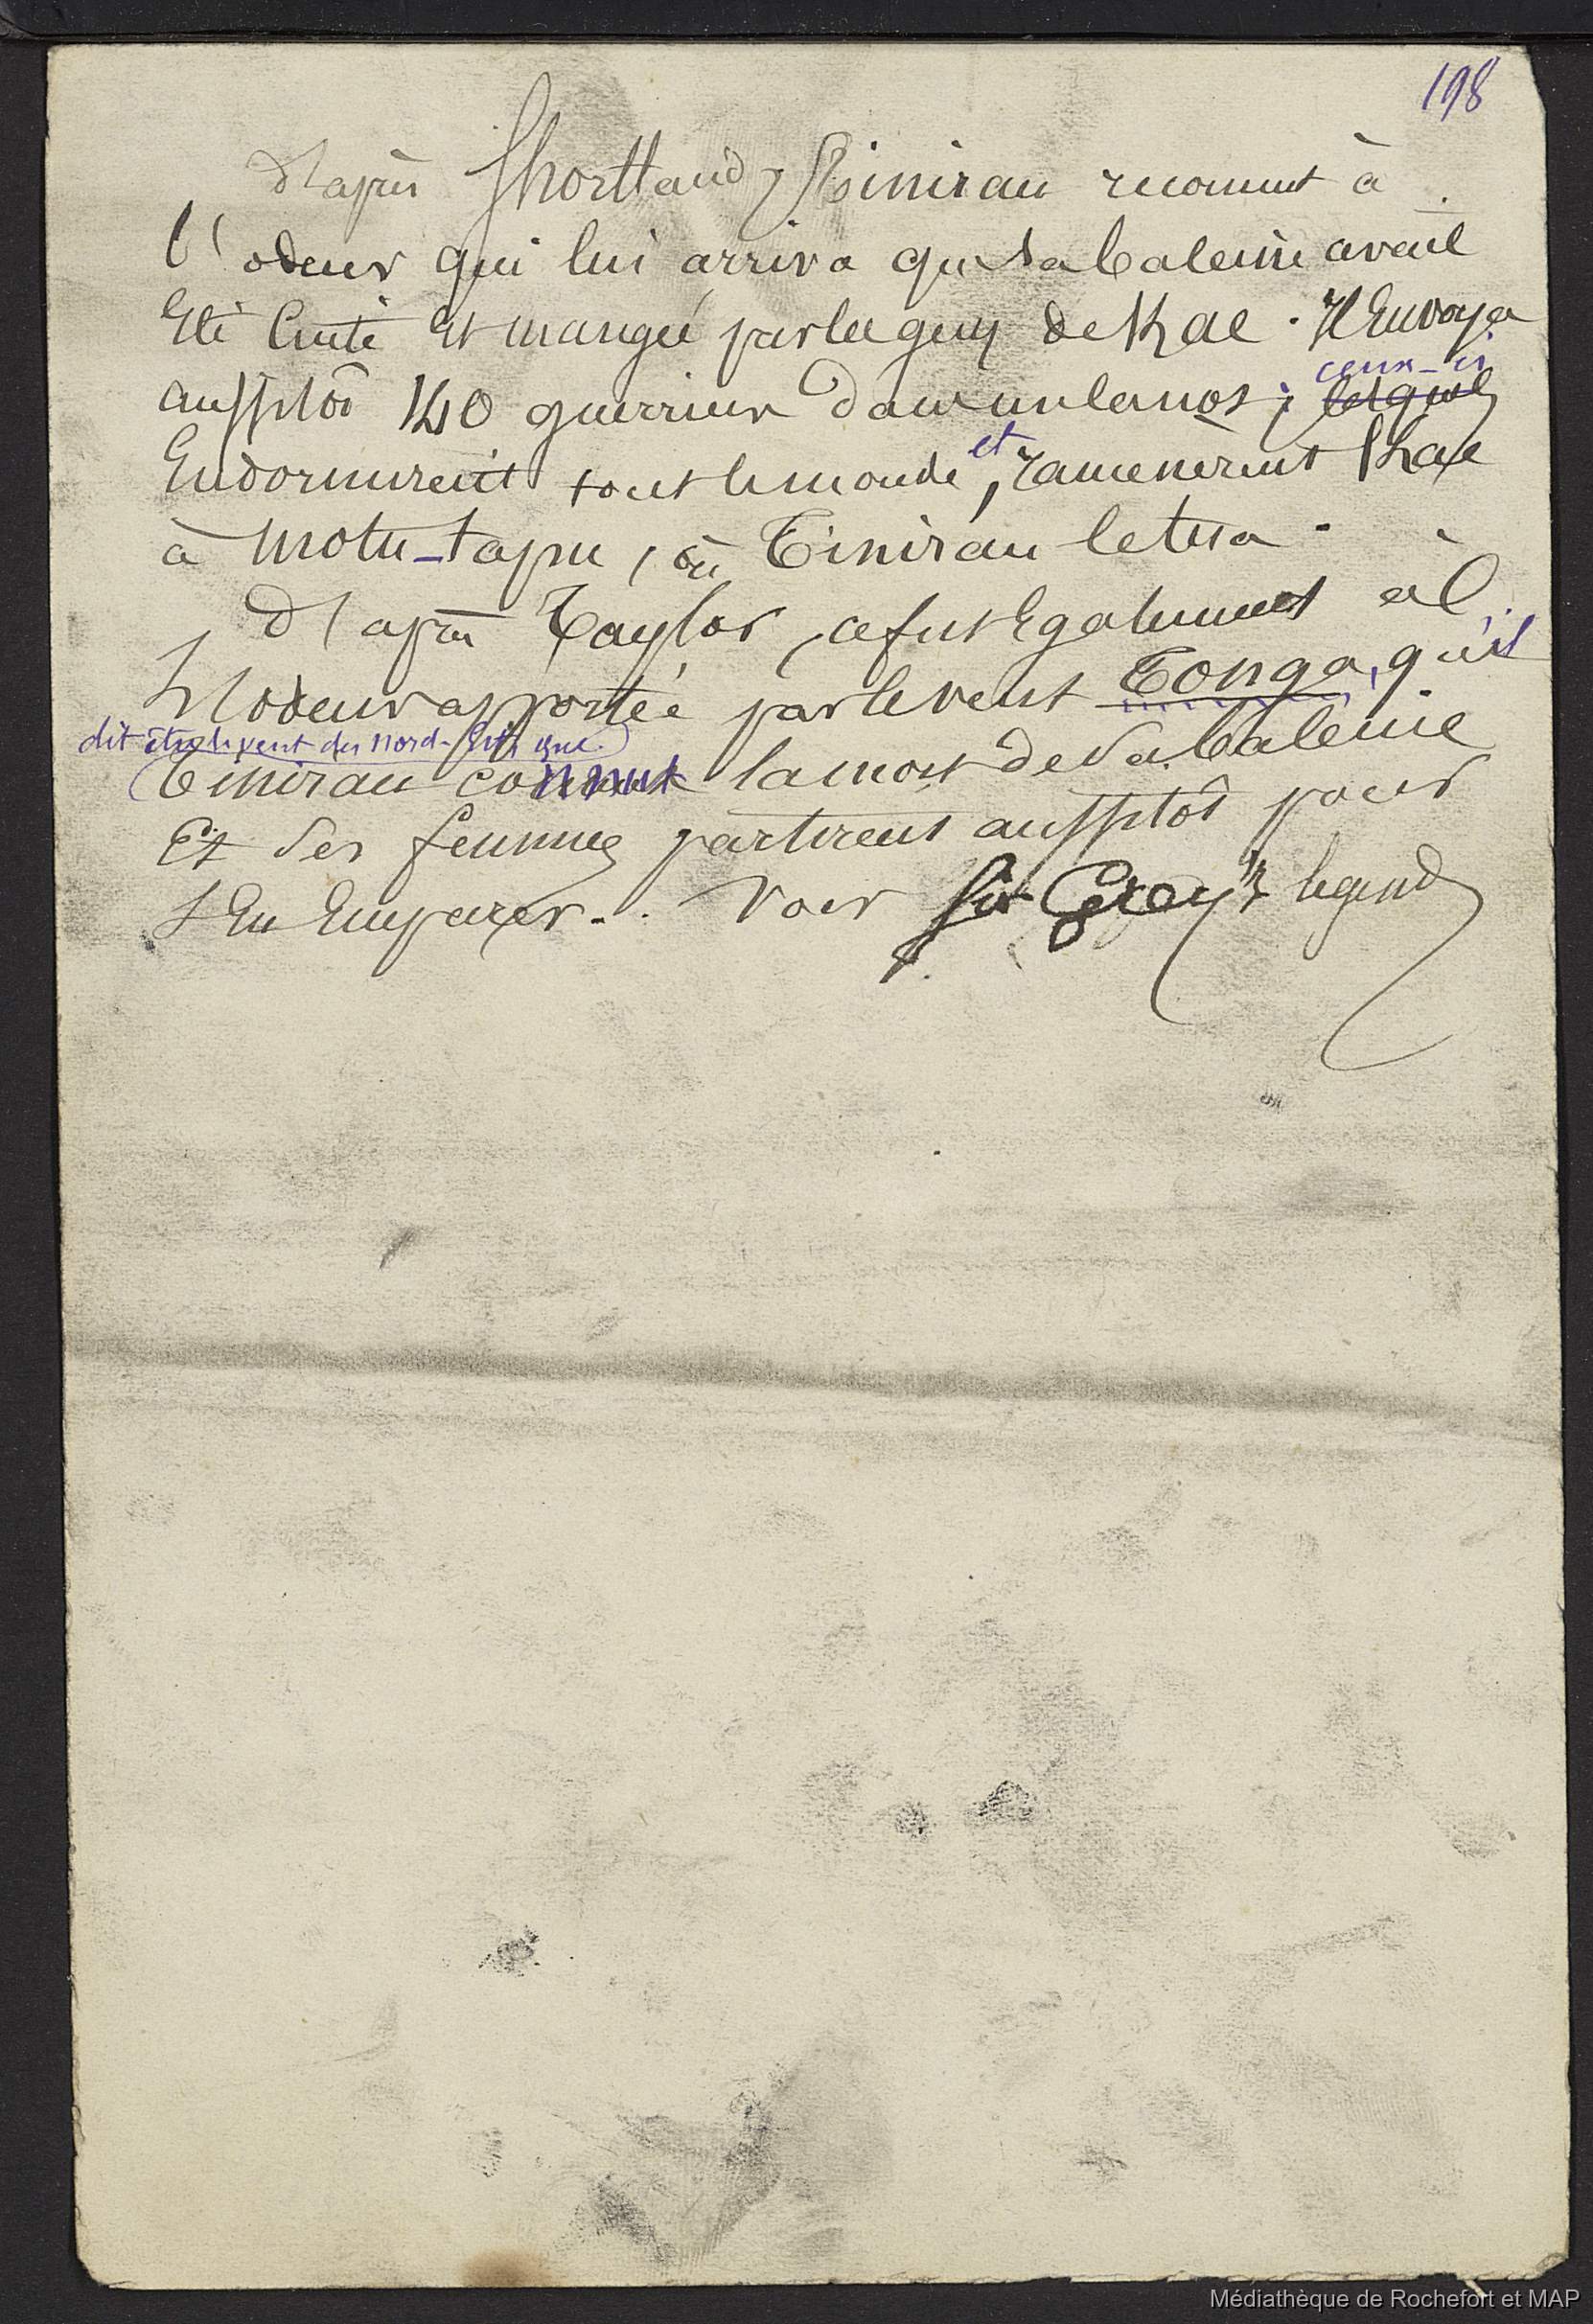 198
D'après Shortland, Tinirau reconnut à
l'odeur qui lui arriva que sa baleine avait
Eté Cuite Et mangée par les gens de Kae. Il Envoya
ceux-ci
aussitôt 140 guerriers dans un canot; lesquels
Endormirent tout le monde et, ramenèrent Kae
à Motu-tapu, où Tinirau le tua.
D'après Taylor, ce fut Egalement à l'
l'odeur apportée par le vent Tonga, qu'il
dit être le vent du nord-Est, que
Tinirau connut la mort de sa baleine
Et ses femmes partirent aussitôt pour
s'En Emparer. . Voir Sir Grey's legends
Médiathèque de Rochefort et MAP